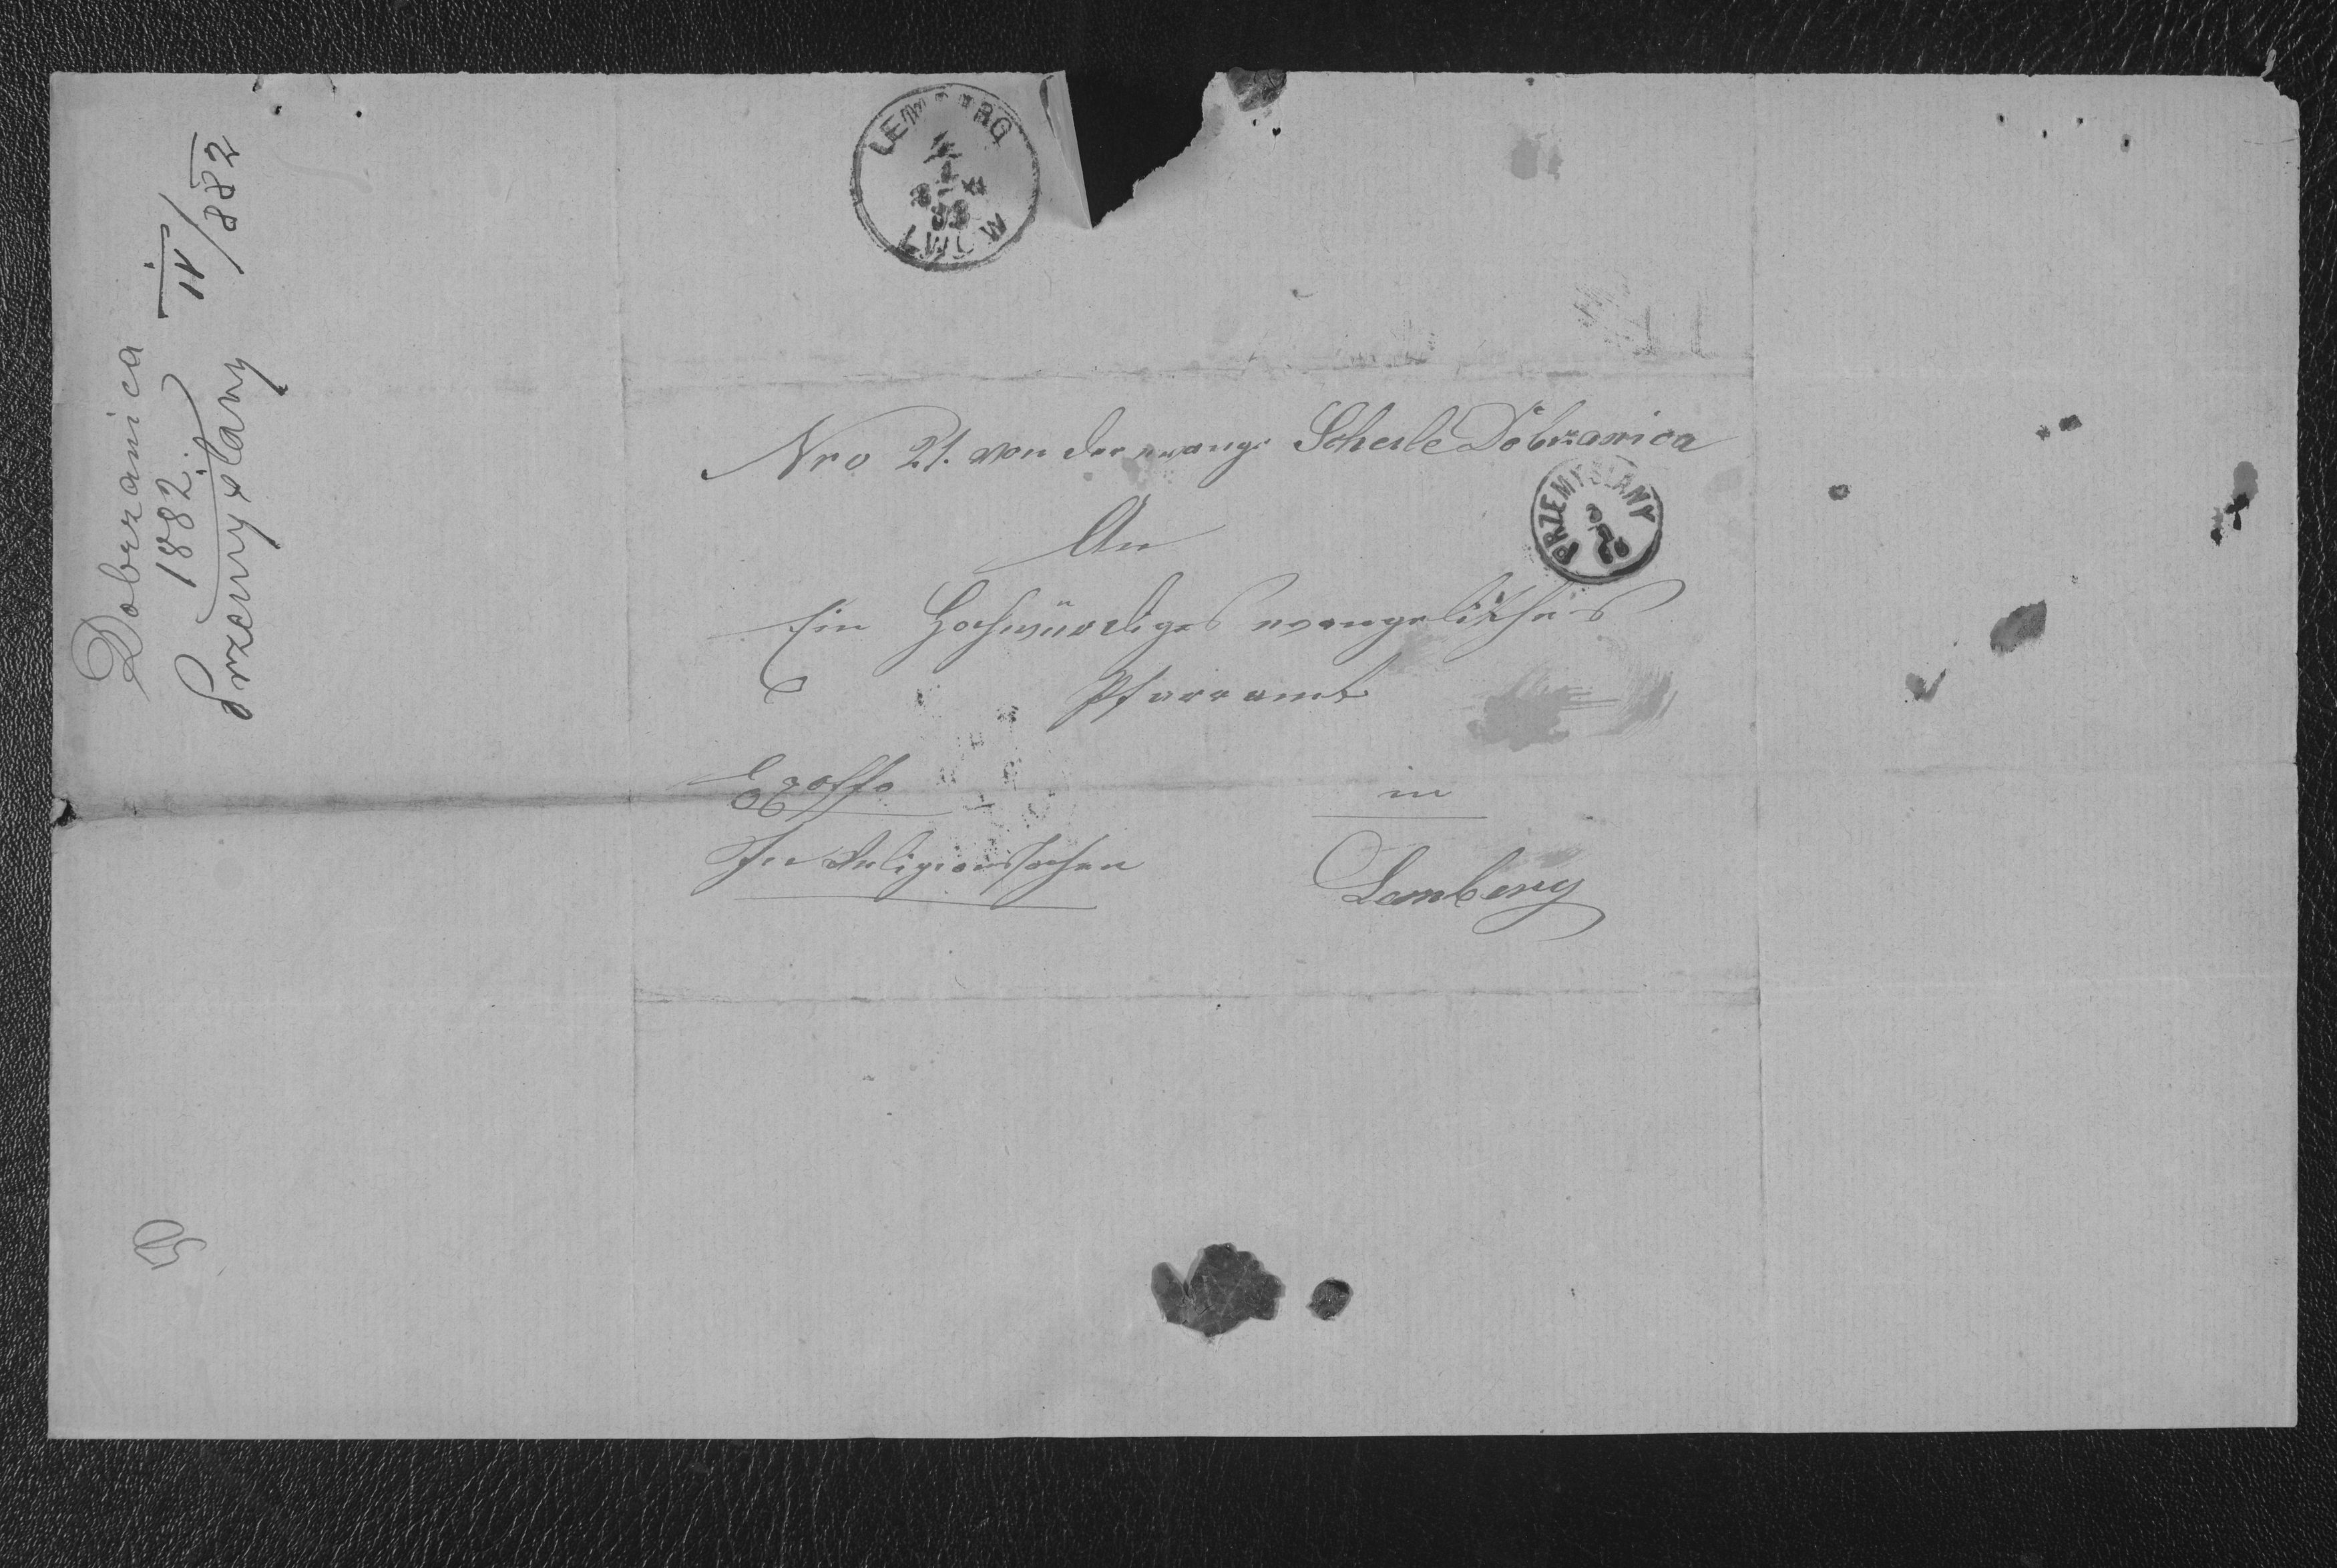 Dobrzanica
1882.
Przemyslany
IV/882
LEMBERG
LWÓW
Nro 21. von der evang. Schule Dobrzanica
PRZEMYSLANY
An
Ein Hochwürdiges evangelisches
Pfarramt
Exoffo
in
In Religionssachen
Lemberg